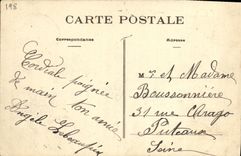 198
CARTE POSTALE
Correspondance
Adresse
Cordiale poignée
de main ton amie
Angèle
Mr. et Madame
Boussonnière
31 rue Arago
Puteaux
Seine